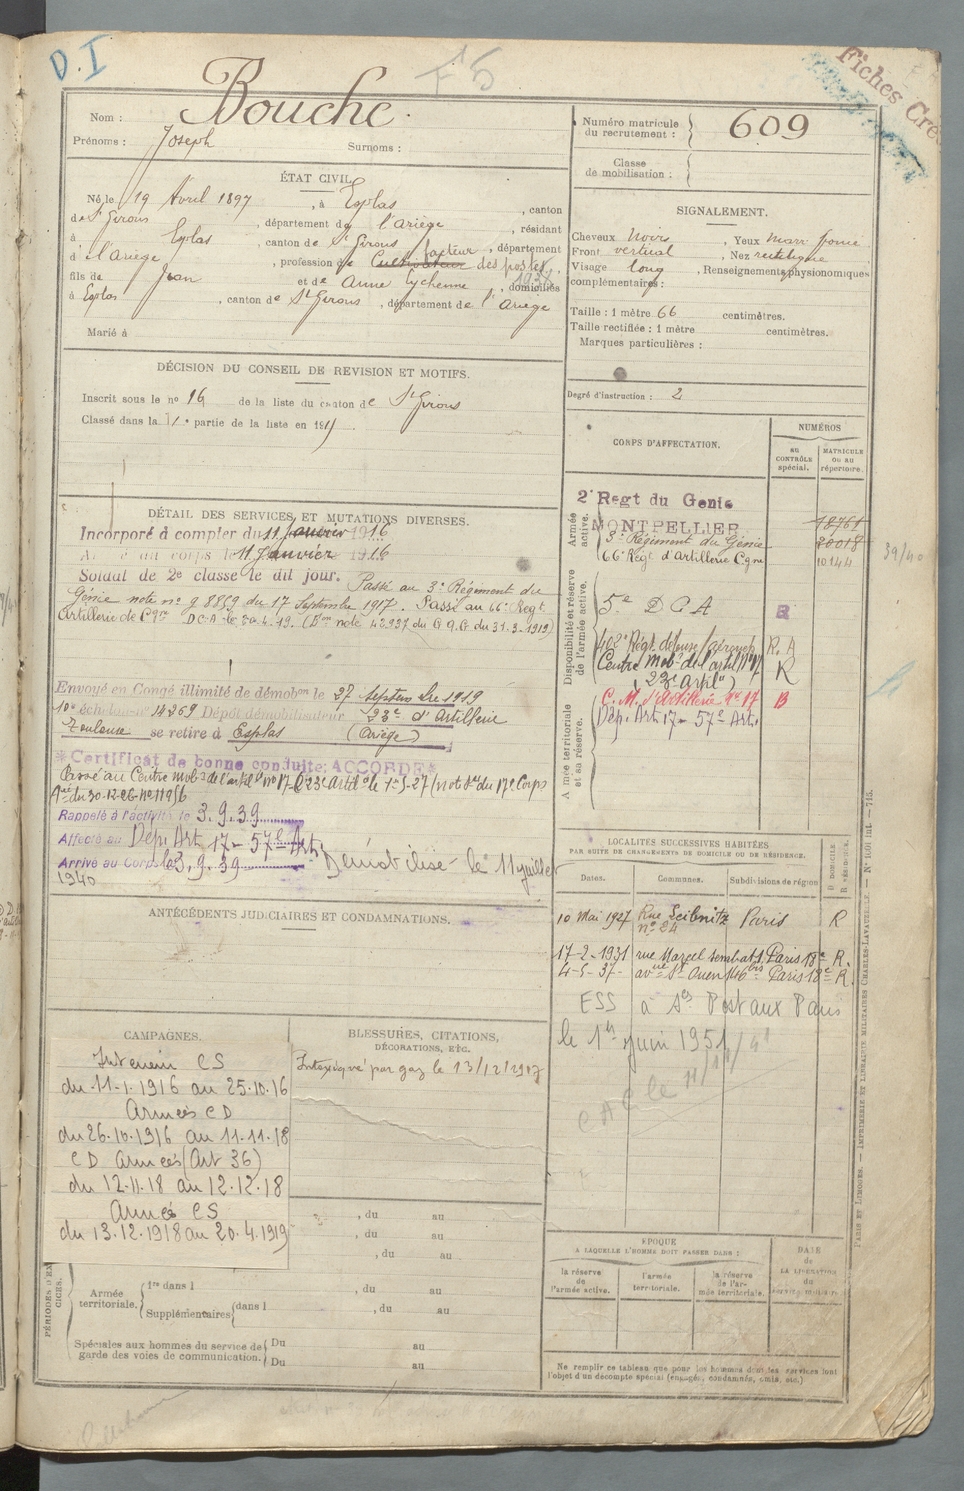 D.I
F 5
Fiches Cré
Nom : Bouche
Prénoms : Joseph Surnoms :
Numéro matricule du recrutement : 609
Classe de mobilisation :
ÉTAT CIVIL.
Né le 19 Avril 1897, à Esplas, canton
de St Girons, département de l'Ariège, résidant
à Esplas, canton de St Girons, département
d l'Ariège, profession de Cultivateur facteur des postes
fils de Jean et de Anne Eychenne, domiciliés
à Esplas, canton de St Girons, département de l'Ariège
Marié à
SIGNALEMENT.
Cheveux noirs, Yeux marr. foncé
Front vertical, Nez rectiligne
Visage long, Renseignements physionomiques
complémentaires :
Taille : 1 mètre 66 centimètres.
Taille rectifiée : 1 mètre centimètres.
Marques particulières :
Degré d'instruction : 2
DÉCISION DU CONSEIL DE REVISION ET MOTIFS.
Inscrit sous le no 16 de la liste du canton de St Girons
Classé dans la 1re partie de la liste en 191
DÉTAIL DES SERVICES ET MUTATIONS DIVERSES.
Incorporé à compter du 11 Janvier 1916
Arrivé au corps le 11 Janvier 1916
Soldat de 2e classe le dit jour. Passé au 3e Régiment du
Génie note no 9 8859 du 17 Septembre 1917. Passé au 66e Regt
Artillerie de Cgne DCA le 20.4.19. (Don note 42937 du G.Q.G. du 31.3.1919)
Envoyé en Congé illimité de démobon le 27 septembre 1919
10e échelon no 14269 Dépôt démobilisateur 23e d'Artillerie
Toulouse se retire à Esplas (Ariège)
*Certificat de bonne conduite: ACCORDÉ*
Passé au Centre Mobr de l'artilie no 17 (23e artie) le 1-5-27 (note du 17e Corps
Ar du 30-12-26 No 11956
Rappelé à l'activité le 3.9.39
Affecté au Dép. Art 17 - 57e Art.
Arrivé au Corps le 3.9.39 Démobilisé le 11 juillet
1940
ANTÉCÉDENTS JUDICIAIRES ET CONDAMNATIONS.
CORPS D'AFFECTATION.
NUMÉROS
AU CONTRÔLE spécial.
MATRICULE OU AU répertoire.
Armée active.
2e Regt du Genie
MONTPELLIER 18761
3e Régiment du Génie 20018
66e Regt d'Artillerie Cgne 10144
39/40
Disponibilité et réserve de l'armée active.
5e DCA B
402e Régt défense aérienne R.A
Centre Mobr de l'artie No 17 R
(23e Artie)
C.M. d'Artillerie No 17 B
Dép. Art 17 - 57e Art.
Armée territoriale et sa réserve.
LOCALITÉS SUCCESSIVES HABITÉES
PAR SUITE DE CHANGEMENTS DE DOMICILE OU DE RÉSIDENCE.
Dates. Communes. Subdivisions de région D. DOMICILE. R. RÉSIDENCE.
10 Mai 1927 Rue Leibnitz no 24 Paris R
17-2-1931 rue Marcel Sembat 1. Paris 18e R.
4-5-37- avnue St Ouen 146 bis Paris 18e R.
ESS à Ss Postaux Paris
le 1er juin 1951
CAMPAGNES.
Intérieur CS
du 11-1-1916 au 25.10.16
Armées CD
du 26.10.1916 au 11-11-18
CD Armées (Art 36)
du 12.11.18 au 12.12.18
Armées CS
du 13.12.1918 au 20.4.1919
BLESSURES, CITATIONS,
DÉCORATIONS, ETC.
Intoxiqué par gaz le 13/12/1917
, du au
, du au
, du au
PÉRIODES D'EX CICES.
Armée territoriale. 1re dans l , du au
Supplémentaires dans l , du au
Spéciales aux hommes du service de garde des voies de communication. Du au
Du au
ÉPOQUE
A LAQUELLE L'HOMME DOIT PASSER DANS :
la réserve de l'armée active.
l'armée territoriale.
la réserve de l'armée territoriale.
DATE de LA LIBÉRATION du service militaire.
Ne remplir ce tableau que pour les hommes dont les services font
l'objet d'un décompte spécial (engagés, condamnés, omis, etc.)
PARIS ET LIMOGES. — IMPRIMERIE ET LIBRAIRIE MILITAIRES CHARLES-LAVAUZELLE.